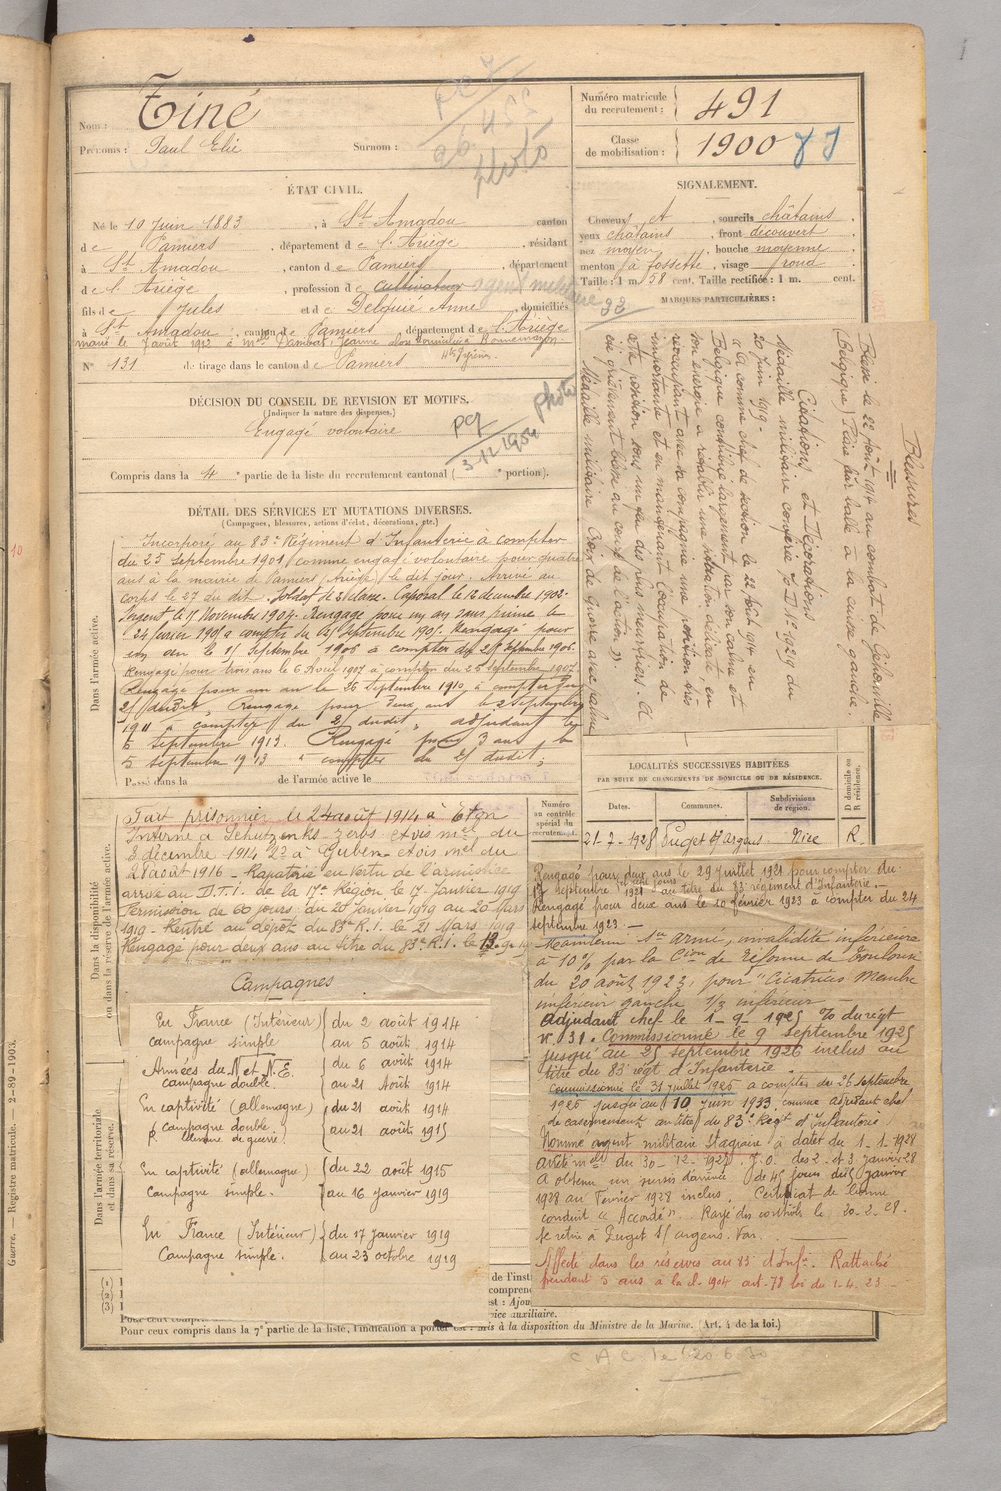 Nom : Tiné
Prénoms : Paul Elie Surnom :
Numéro matricule du recrutement : 491
Classe de mobilisation : 1900
ÉTAT CIVIL.
Né le 10 Juin 1883, à St Amadou canton
de Pamiers, département de l'Ariège, résidant
à St Amadou, canton de Pamiers, département
de l'Ariège, profession de cultivateur agent militaire
fils de Jules et de Delquié Anne, domiciliés
à St Amadou, canton de Pamiers département de l'Ariège
marié le 7 août 1912 à Mlle Dambax, Jeanne
N° 131 de tirage dans le canton de Pamiers
SIGNALEMENT.
Cheveux et, sourcils châtains,
yeux châtains, front découvert
nez moyen, bouche moyenne
menton à fossette, visage rond
Taille : 1 m. 58 cent. Taille rectifiée : 1 m. cent.
MARQUES PARTICULIÈRES :
DÉCISION DU CONSEIL DE REVISION ET MOTIFS.
(Indiquer la nature des dispenses.)
Engagé volontaire
3-12-1954
photo
Compris dans la 4e partie de la liste du recrutement cantonal ( e portion).
DÉTAIL DES SERVICES ET MUTATIONS DIVERSES.
(Campagnes, blessures, actions d'éclat, décorations, etc.)
Dans l'armée active.
Incorporé au 83e Régiment d'Infanterie à compter
du 25 Septembre 1901, comme engagé volontaire pour quatre
ans à la mairie de Pamiers (Ariège) le dit jour. Arrivé au
corps le 27 du dit. Soldat de 2e classe. Caporal le 12 décembre 1902.
Sergent le 17 Novembre 1904. Rengagé pour un an sans prime le
24 février 1905 à compter du 25 Septembre 1905. Rengagé pour
un an le 15 Septembre 1906 à compter du 25 Septembre 1906.
Rengagé pour trois ans le 6 Avril 1907 à compter du 25 septembre 1907.
Rengagé pour un an le 26 Septembre 1910, à compter du
25 dudit, Rengagé pour deux ans le 2 Septembre
1911 à compter du 25 dudit, adjudant le
6 septembre 1913. Rengagé pour 3 ans le
5 septembre 1913 à compter du 25 dudit,
Passé dans la de l'armée active le
Blessures
Blessé le 22 août 1914 au combat de
(Belgique) Plaie par balle à la cuisse gauche.
Citations et Décorations
Médaille militaire conférée J.O. Dt 12929 du
20 juin 1919.
"A comme chef de section le 22 août 1914 en
Belgique contribué largement par son calme et
son énergie à rétablir une situation délicate, en
réoccupant avec sa compagnie une position très
importante et en maintenant l'occupation de
cette position sous un feu des plus meurtriers. A
été grièvement blessé au cours de l'action".
Médaille militaire Croix de guerre avec palme
LOCALITÉS SUCCESSIVES HABITÉES
PAR SUITE DE CHANGEMENTS DE DOMICILE OU DE RÉSIDENCE.
Numéro au contrôle spécial du recrutement. Dates. Communes. Subdivisions de région. D domicile ou R résidence.
21-7-1928 Puget s/ Argens. Nice R.
Dans la disponibilité ou dans la réserve de l'armée active.
Fait prisonnier le 24 août 1914 à Eton
Interné à Schutzenhs-Zerbs et avis mel du
3 décembre 1914 22 à Guben et avis mel du
28 août 1916 - Rapatrié en vertu de l'armistice
arrivé au D.T.I. de la 17e Région le 17 Janvier 1919
Permission de 60 jours du 20 Janvier 1919 au 20 Mars
1919 - Rentré au dépôt du 83e R.I. le 21 Mars 1919
Rengagé pour deux ans au titre du 83e R.I. le 13.9.19
Dans l'armée territoriale et dans sa réserve.
Campagnes
En France (Intérieur) du 2 août 1914
campagne simple au 5 août 1914
Armées du N et N.E. du 6 août 1914
campagne double. au 21 Août 1914
En captivité (allemagne) du 21 août 1914
campagne double. au 21 août 1915
p. blessure de guerre.
En captivité (allemagne) du 22 août 1915
Campagne simple. au 16 janvier 1919
En France (Intérieur) du 17 janvier 1919
Campagne simple. au 23 octobre 1919
Rengagé pour deux ans le 29 juillet 1921 pour compter du
17 septembre 1921 au titre du 83e régiment d'Infanterie.
Rengagé pour deux ans le 20 février 1923 à compter du 24
septembre 1923 -
Maintenu Sce armé, invalidité inférieure
à 10% par la Cion de Réforme de Toulouse
du 20 août 1923, pour "Cicatrices Membre
inférieur gauche 1/3 inférieur -
Adjudant chef le 1-9-1925 % du régt
n° 31. Commissionné le 9 septembre 1925
jusqu'au 25 septembre 1926 inclus au
titre du 83e régt d'Infanterie.
Commissionné le 31 juillet 1926 à compter du 26 septembre
1926 jusqu'au 10 juin 1933 comme adjudant chef
de casernement au titre du 83e Régt d'Infanterie.
Nommé agent militaire Stagiaire à dater du 1-1-1928
Arrêté mel du 30-12-1927. J.O. des 2 et 3 janvier 28
A obtenu un sursis d'arrivée de 45 jours du 5 janvier
1928 au Février 1928 inclus. Certificat de bonne
conduite "Accordé". Rayé des contrôles le 20-2-28.
Se retire à Puget s/ argens. Var.
Affecté dans les réserves au 83e d'Infie. Rattaché
pendant 5 ans à la cl. 1904 art. 78 loi du 1-4-23 -
Pour ceux compris dans la 7e partie de la liste, l'indication à porter est : Mis à la disposition du Ministre de la Marine. (Art. 4 de la loi.)
C A C le 20 6 30
Guerre. — Registre matricule. — 2-89-1903.